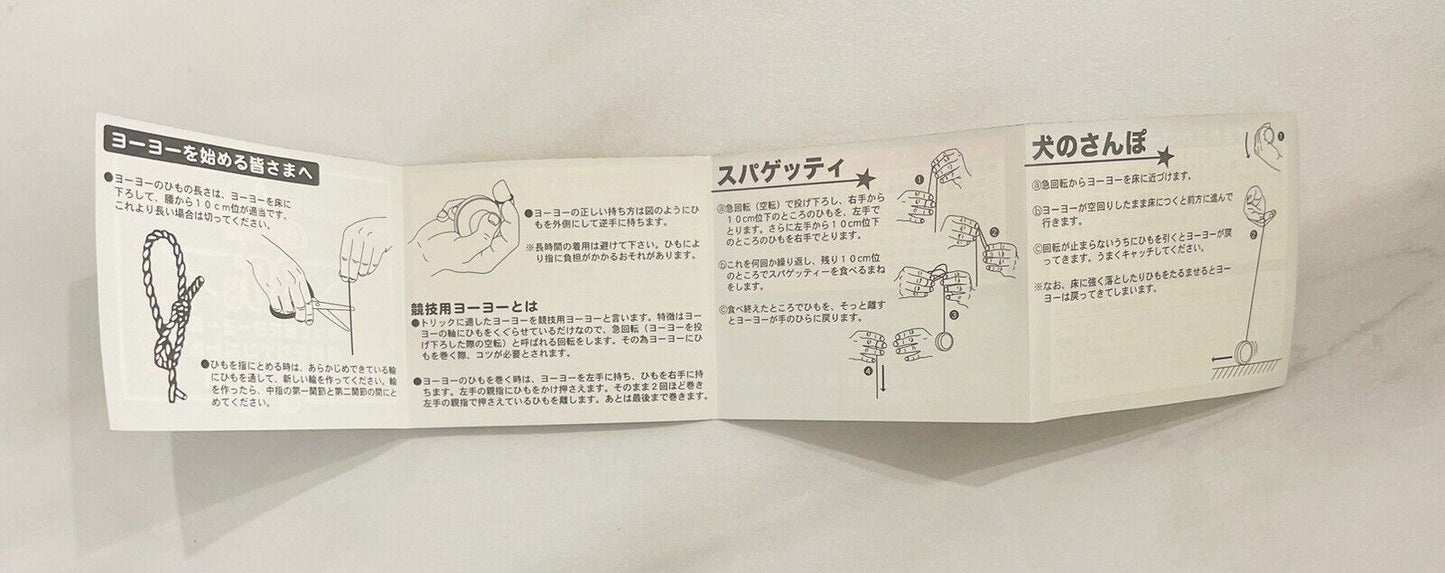 ヨーヨーを始める皆さまへ
●ヨーヨーのひもの長さは、ヨーヨーを床に
下ろして、腰から10cm位が適当です。
これより長い場合は切ってください。
●ひもを指にとめる時は、あらかじめできている輪
にひもを通して、新しい輪を作ってください。輪
を作ったら、中指の第一関節と第二関節の間にと
めてください。
●ヨーヨーの正しい持ち方は図のようにひ
もを外側にして逆手に持ちます。
※長時間の着用は避けて下さい。ひもによ
り指に負担がかかるおそれがあります。
競技用ヨーヨーとは
●トリックに適したヨーヨーを競技用ヨーヨーと言います。特徴はヨー
ヨーの軸にひもをくぐらせているだけなので、急回転(ヨーヨーを投
げ下ろした際の空転)と呼ばれる回転をします。その為ヨーヨーにひ
もを巻く際、コツが必要とされます。
●ヨーヨーのひもを巻く時は、ヨーヨーを左手に持ち、ひもを右手に持
ちます。左手の親指にひもをかけ押さえます。そのまま2回ほど巻き
左手の親指で押さえているひもを離します。あとは最後まで巻きます。
スパゲッティ★
ⓐ急回転(空転)で投げ下ろし、右手から
10cm位下のところのひもを、左手で
とります。さらに左手から10cm位下
のところのひもを右手でとります。
ⓑこれを何回か繰り返し、残り10cm位
のところでスパゲッティーを食べるまね
をします。
ⓒ食べ終えたところでひもを、そっと離す
とヨーヨーが手のひらに戻ります。
❶
❷
❸
❹
犬のさんぽ★
ⓐ急回転からヨーヨーを床に近づけます。
ⓑヨーヨーが空回りしたまま床につくと前方に進んで
行きます。
ⓒ回転が止まらないうちにひもを引くとヨーヨーが戻
ってきます。うまくキャッチしてください。
※なお、床に強く落としたりひもをたるませるとヨー
ヨーは戻ってきてしまいます。
❶
❷